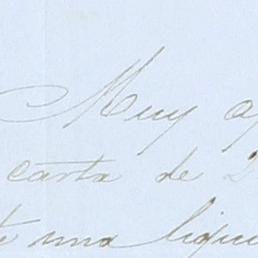 Muy ap
carta de 2
te una liqui